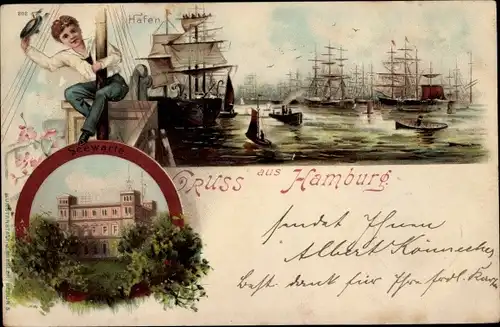 Hafen
Seewarte
Gruss aus Hamburg.
sendet Ihnen
Albert
Best. dank für Ihre frdl. Karte